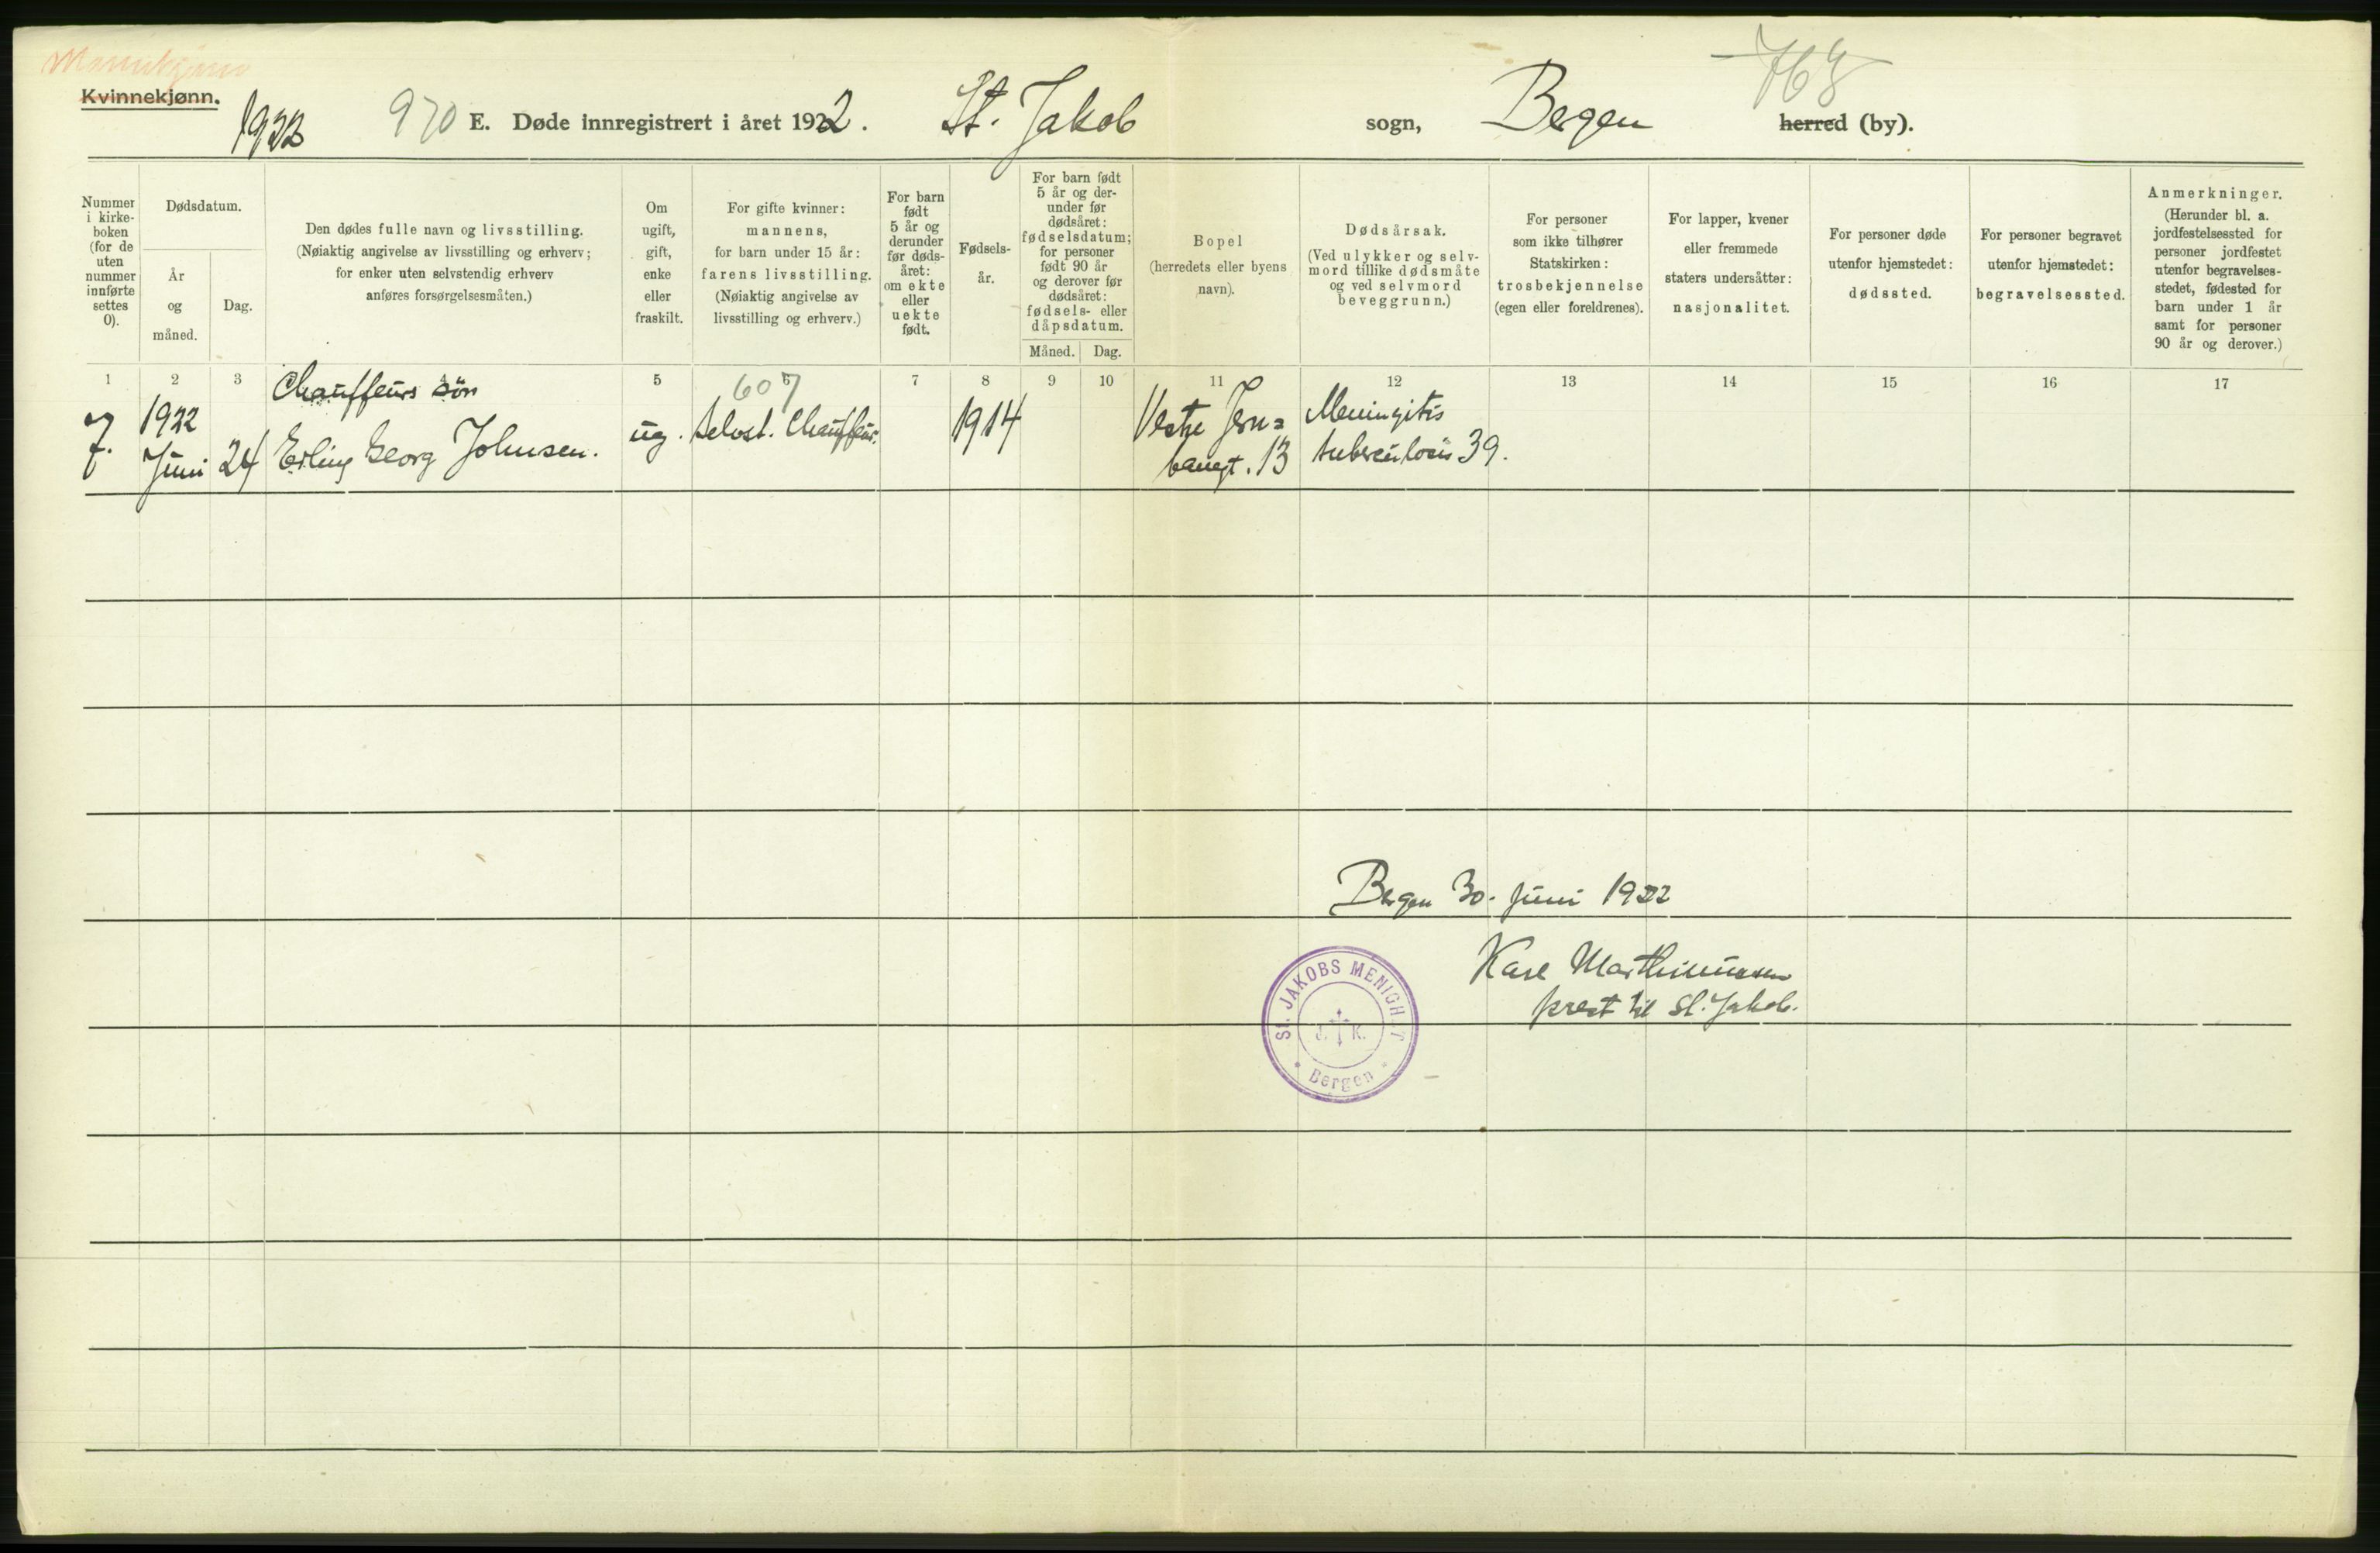 Mannkjønn
Kvinnekjønn.
1922
970 E. Døde innregistrert i året 1922. St. Jakob sogn, Bergen herred (by).
Nummer i kirke-boken (for de uten nummer innførte settes 0).
Dødsdatum.
År og måned.
Dag.
Den dødes fulle navn og livsstilling.
(Nøiaktig angivelse av livsstilling og erhverv;
for enker uten selvstendig erhverv
anføres forsørgelsesmåten.)
Om
ugift,
gift,
enke
eller
fraskilt.
For gifte kvinner:
mannens,
for barn under 15 år:
farens livsstilling.
(Nøiaktig angivelse av
livsstilling og erhverv.)
For barn
født
5 år og
derunder
før døds-
året:
om ekte
eller
uekte
født.
Fødsels-
år.
For barn født
5 år og der-
under før
dødsåret:
fødselsdatum;
for personer
født 90 år
og derover før
dødsåret:
fødsels- eller
dåpsdatum.
Måned. Dag.
Bopel
(herredets eller byens
navn).
Dødsårsak.
(Ved ulykker og selv-
mord tillike dødsmåte
og ved selvmord
beveggrunn.)
For personer
som ikke tilhører
Statskirken:
trosbekjennelse
(egen eller foreldrenes).
For lapper, kvener
eller fremmede
staters undersåtter:
nasjonalitet.
For personer døde
utenfor hjemstedet:
dødssted.
For personer begravet
utenfor hjemstedet:
begravelsessted.
Anmerkninger.
(Herunder bl. a.
jordfestelsessted for
personer jordfestet
utenfor begravelses-
stedet, fødested for
barn under 1 år
samt for personer
90 år og derover.)
1 2 3 4 5 6 7 8 9 10 11 12 13 14 15 16 17
607
7. 1922 Juni 24
Chauffeurs søn
Erling Georg Johnsen.
ug.
Selvst. Chauffeur.
1914
Vestre Jern=
banegt. 13
Meningitis
tuberculosis 39.
Bergen 30. juni 1922
Karl Marthinussen
prest til St. Jakob.
St. JAKOBS MENIGHET
J. K.
Bergen